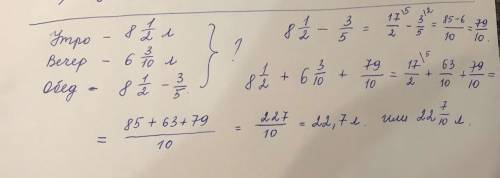 Утро - 8 1/2 л
Вечер - 6 3/10 л
Обед - 8 1/2 - 3/5
} ?
8 1/2 - 3/5 = 17/2 \5 - 3/5 \2 = 85-6/10 = 79/10.
8 1/2 + 6 3/10 + 79/10 = 17/2 \5 + 63/10 + 79/10 =
= 85+63+79/10 = 227/10 = 22,7 л. или 22 7/10 л.